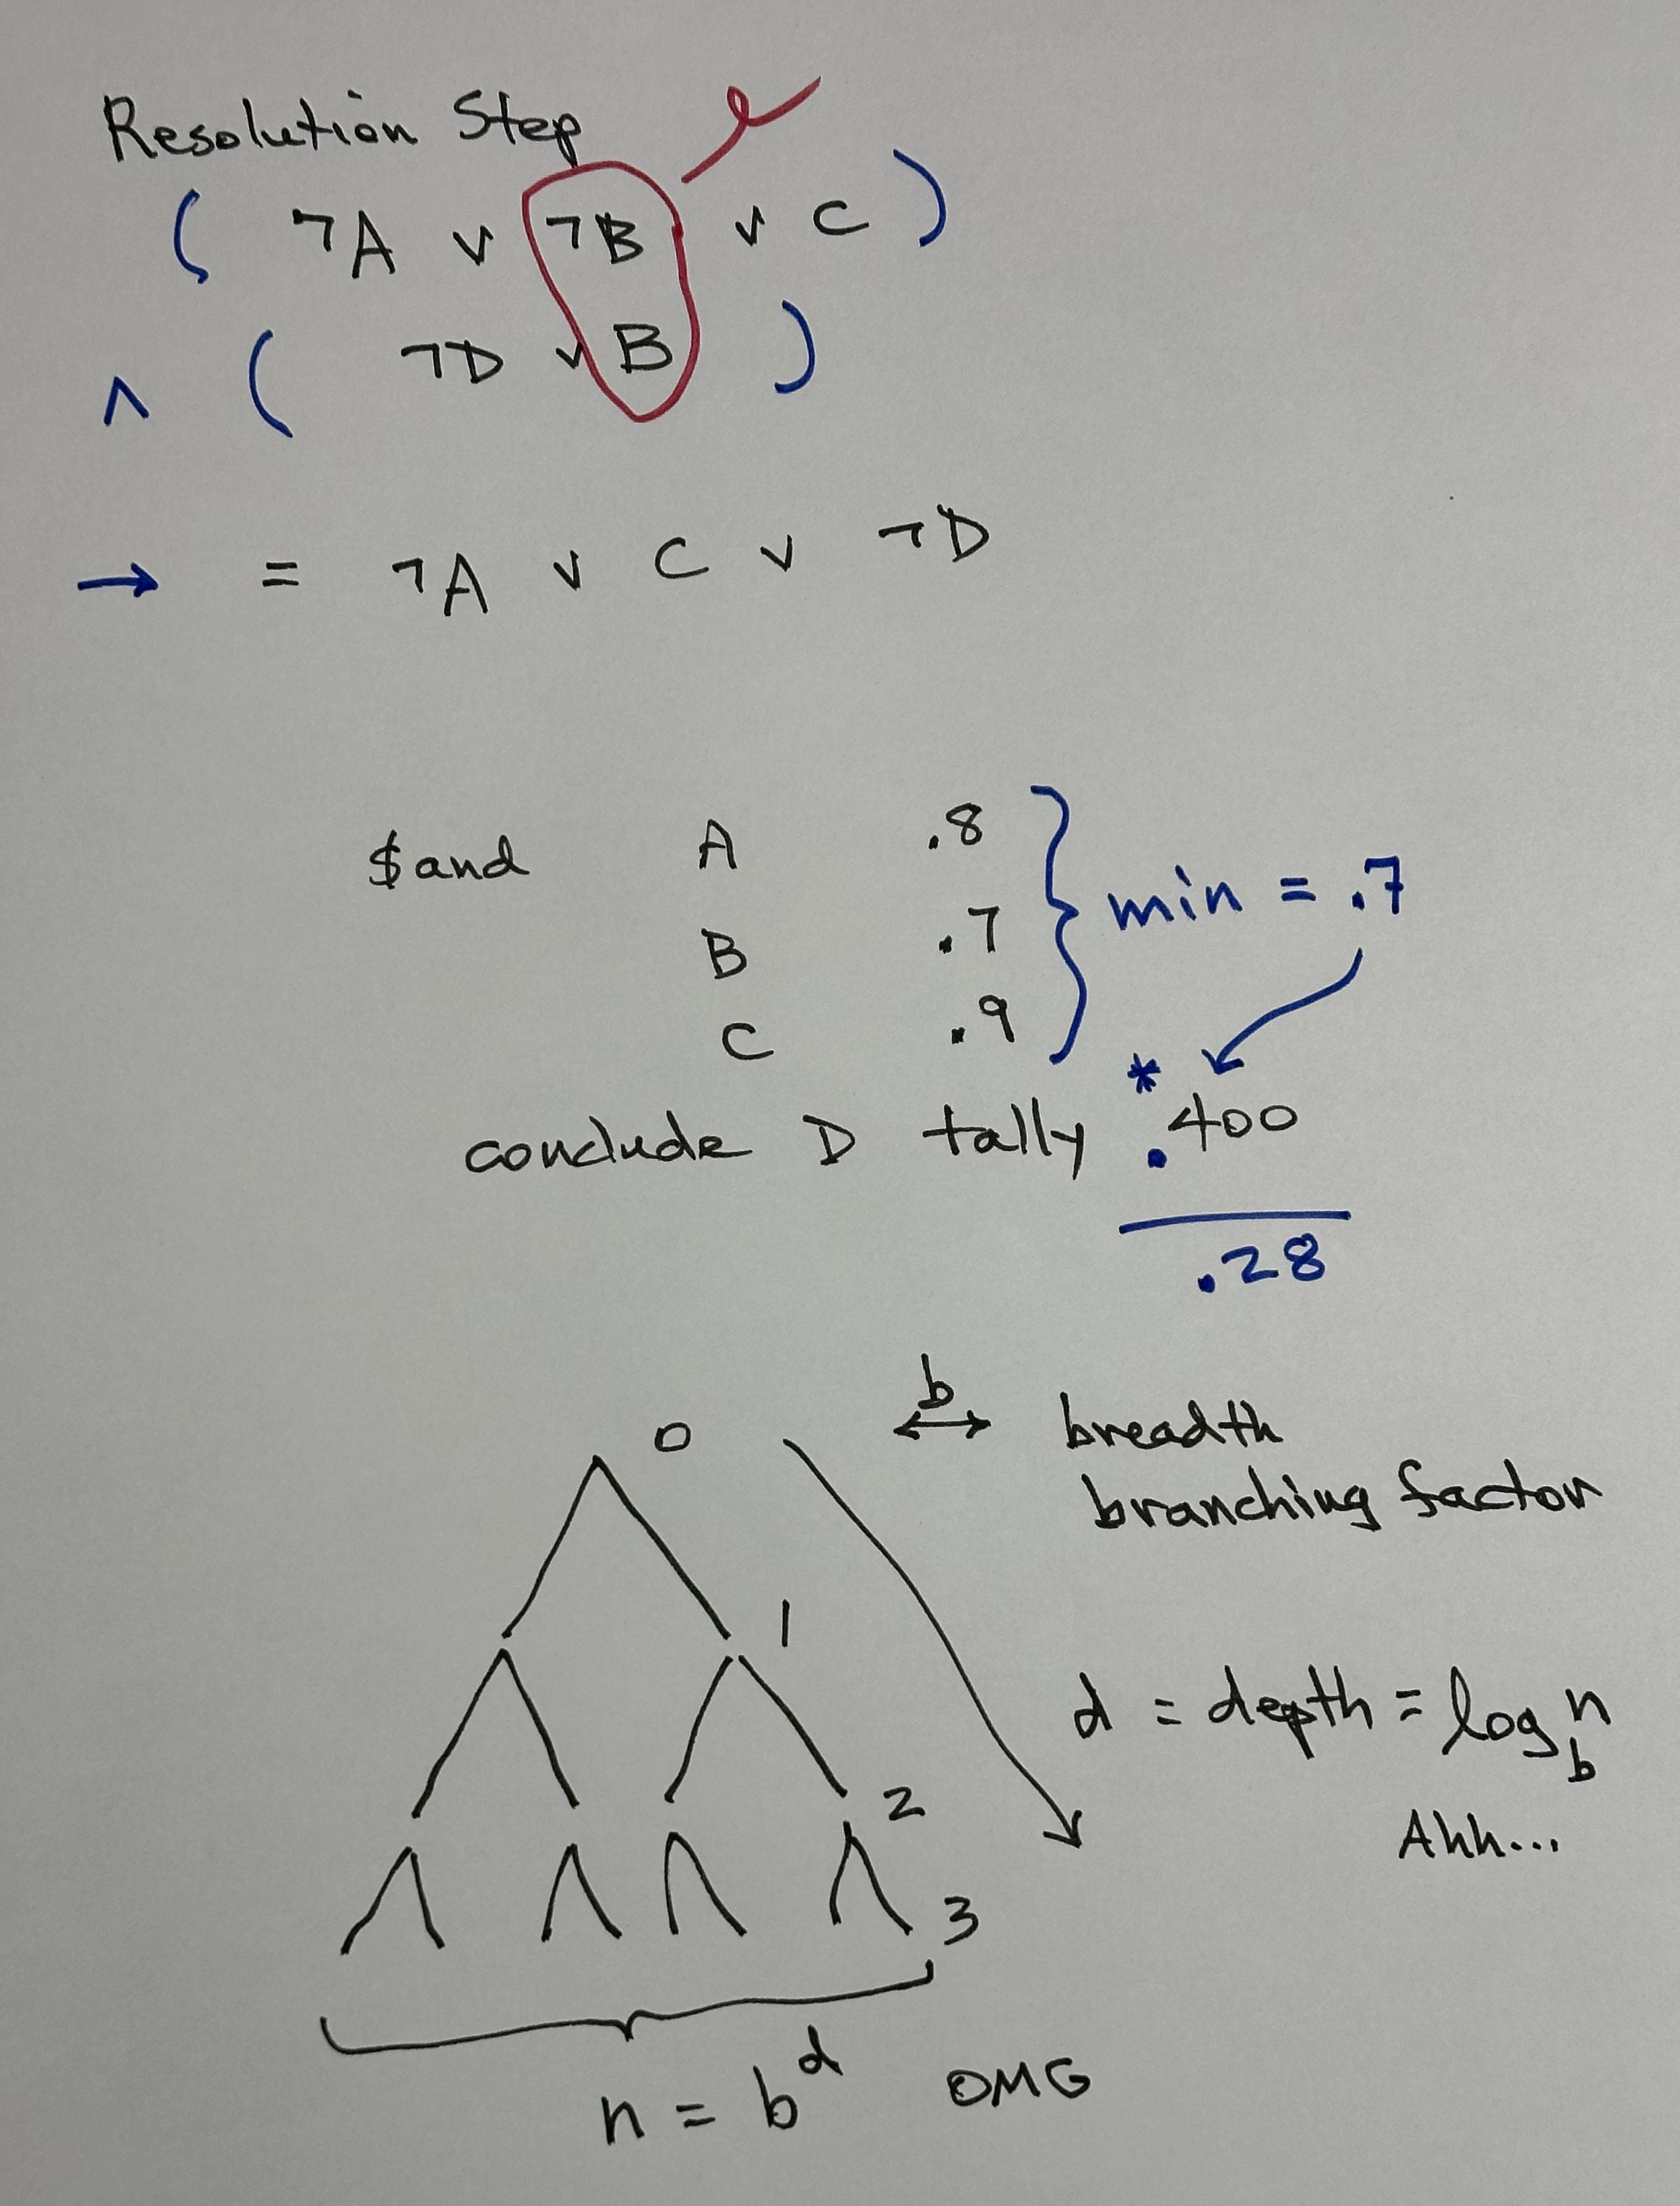 Resolution Step
( ¬A ∨ ¬B ∨ C )
∧ ( ¬D ∨ B )
→ = ¬A ∨ C ∨ ¬D
$and A .8
B .7
C .9
min = .7
*
conclude D tally .400
.28
0
1
2
3
b
↔ breadth
branching factor
d = depth = log_b n
Ahh...
n = b^d OMG